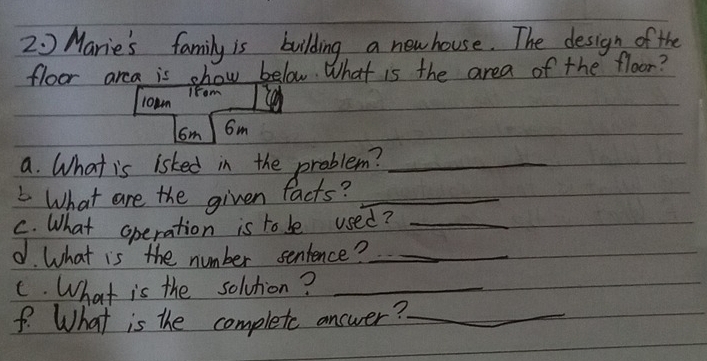 2.) Marie's family is building a new house. The design of the
floor area is show below. What is the area of the floor?
10m
6m 6m
a. What is isked in the problem?
b What are the given facts?
c. What operation is to be used?
d. What is the number sentence?
e. What is the solution?
f. What is the complete answer?